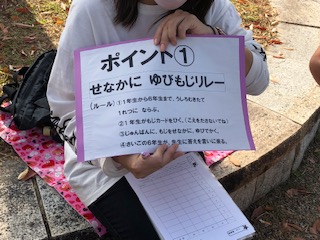 ポイント①
せなかに ゆびもじリレー
(ルール) ①1年生から6年生まで、うしろむきで
1れつに ならぶ。
②1年生がもじカードをひく。(こえをださないでね)
③じゅんばんに、もじをせなかに、ゆびでかく。
④さいごの6年生が、先生に答えを言いに来る。